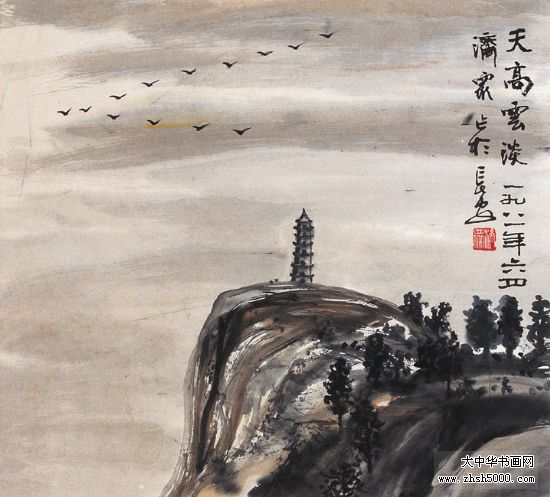 天高雲淡 一九八二年六四
濟衆作於長安
大中华书画网
www.zhsh5000.com